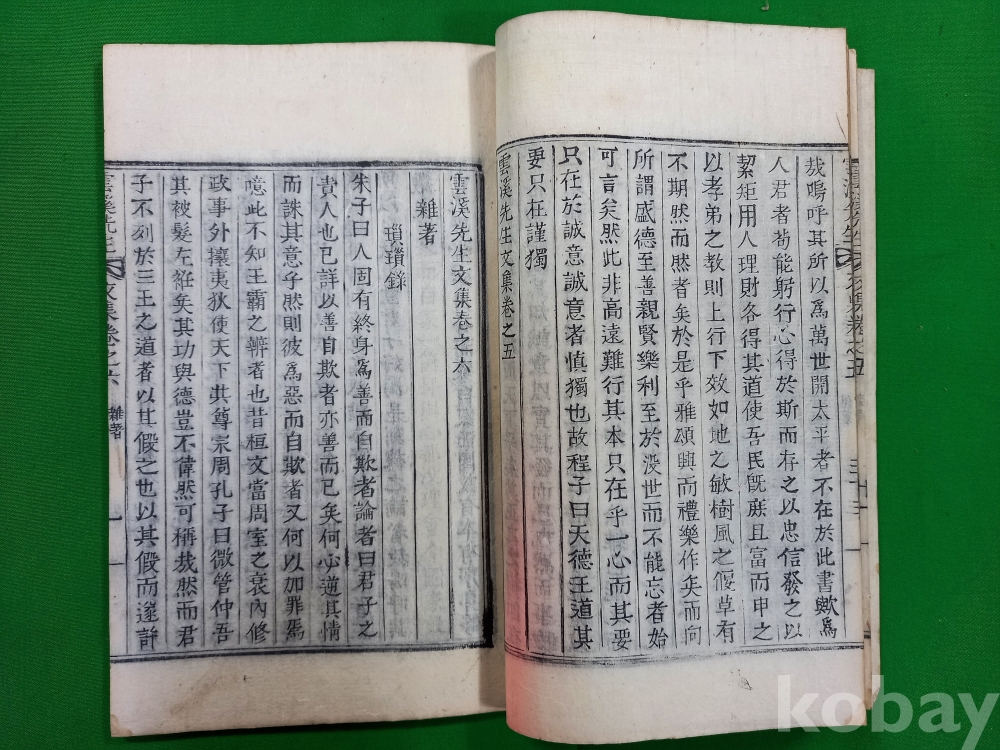 哉嗚呼其所以爲萬世開太平者不在於此書歟爲
人君者苟能躬行心得於斯而存之以忠信發之以
絜矩用人理財各得其道使吾民旣庶且富而申之
以孝弟之教則上行下效如地之敏樹風之偃草有
不期然而然者矣於是乎雅頌興而禮樂作矣而向
所謂盛德至善親賢樂利至於没世而不能忘者始
可言矣然此非高遠難行其本只在乎一心而其要
只在於誠意誠意者愼獨也故程子曰天德王道其
要只在謹獨
雲溪先生文集卷之五
雲溪先生文集卷之六
雜著
瑣錄
朱子曰人固有終身爲善而自欺者論者曰君子之
責人也已詳以善自欺者亦善而已矣何必道其情
而誅其意乎然則彼爲惡而自欺者又何以加罪焉
噫此不知王霸之辨者也昔桓文當周室之衰內修
政事外攘夷狄使天下共尊宗周孔子曰微管仲吾
其被髮左衽矣其功與德豈不偉然可稱哉然而君
子不列於三王之道者以其假之也以其假而遂許
雲溪先生文集卷之六
雜著
kobay